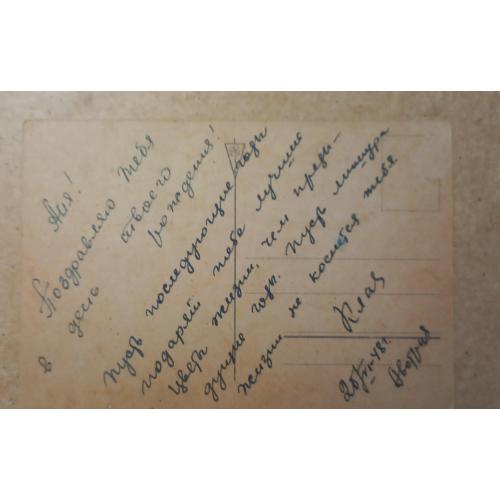 Аня!
Поздравляю тебя
в день твоего
рождения!
Пусть последующие годы
подарят тебе лучший
цвет жизни, чем преды-
дущие годы. Пусть мишура
жизни не коснется тебя
Клая
20/VI-48 г.
Австрия